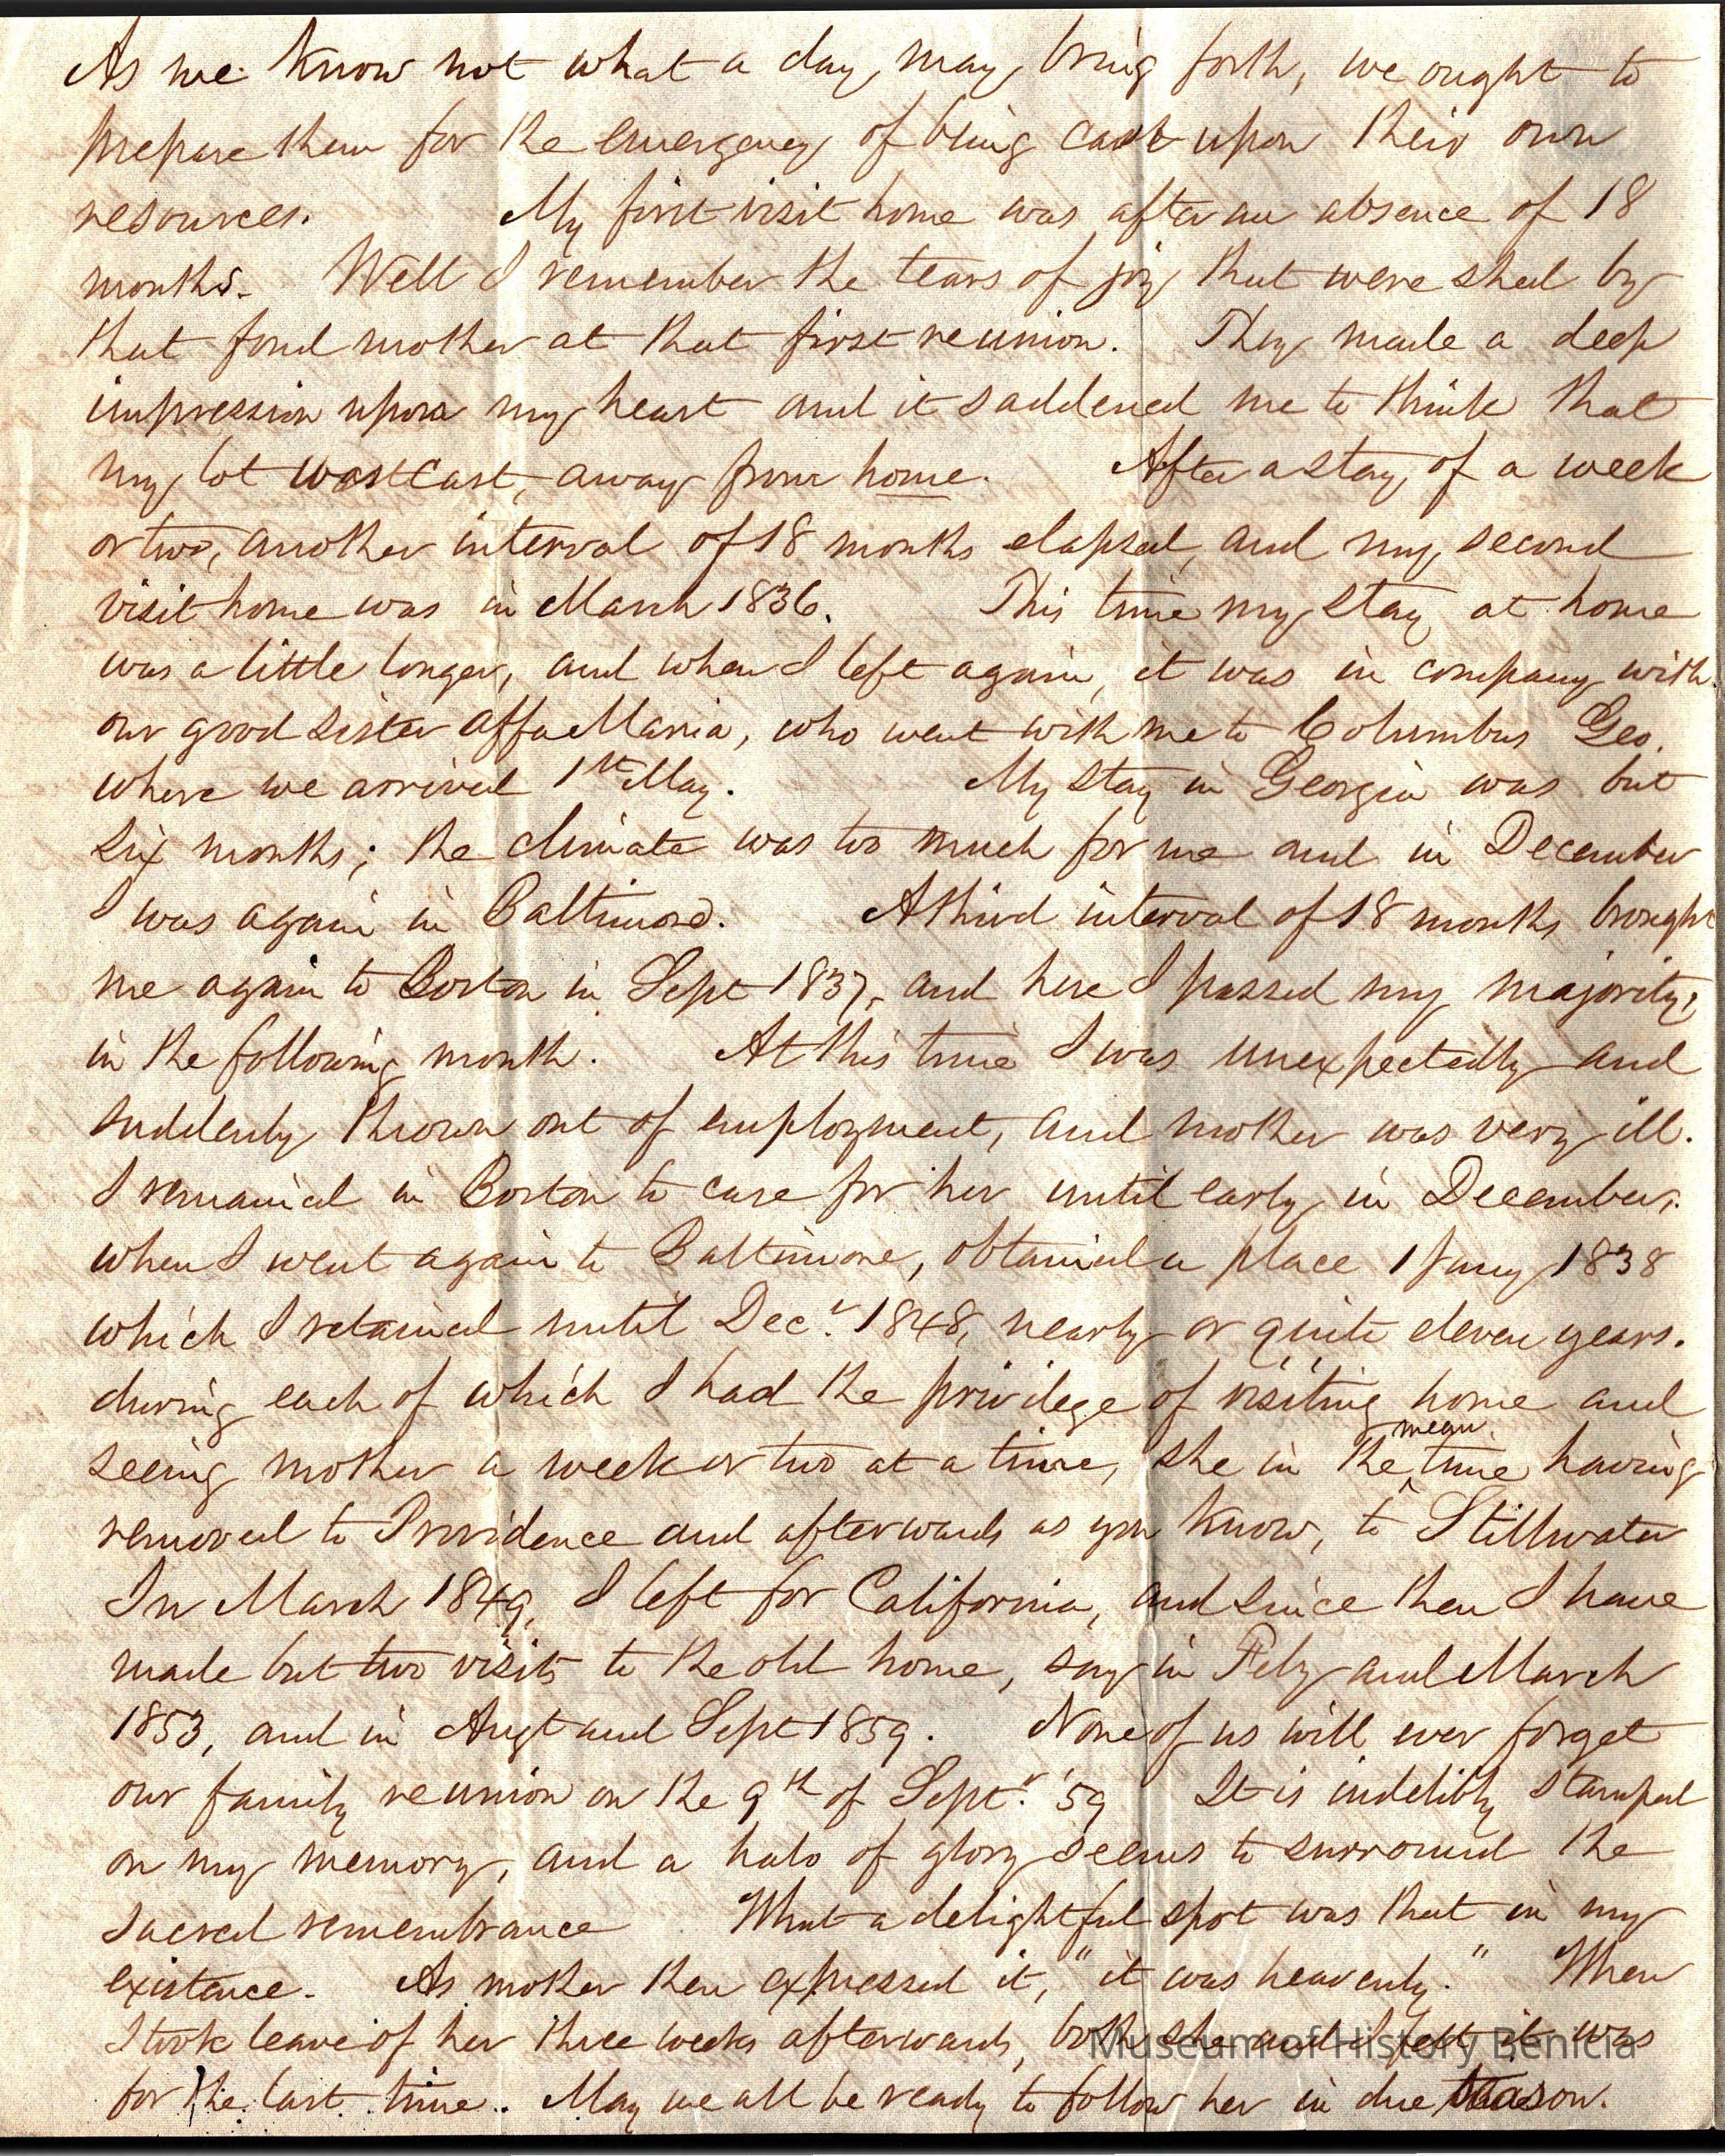 As we know not what a day may bring forth, we ought to
prepare them for the emergency of being cast upon their own
resources. My first visit home was after an absence of 18
months. Well I remember the tears of joy that were shed by
that fond mother at that first reunion. They made a deep
impression upon my heart and it saddened me to think that
my lot was cast, away from home. After a stay of a week
or two, another interval of 18 months elapsed, and my second
visit home was in March 1836. This time my stay at home
was a little longer, and when I left again, it was in company with
our good sister Maria, who went with me to Columbus Geo.
where we arrived 1st May. My stay in Georgia was but
six months; the climate was too much for me and in December
I was again in Baltimore. A third interval of 18 months brought
me again to Boston in Sept 1837, and here I passed my majority,
in the following month. At this time I was unexpectedly and
suddenly thrown out of employment, and mother was very ill.
I remained in Boston to care for her until early in December,
when I went again to Baltimore, obtained a place 1 Jany 1838
which I retained until Decr. 1848, nearly or quite eleven years.
during each of which I had the privilege of visiting home and
seeing mother a week or two at a time, she in the mean time having
removed to Providence and afterwards as you know, to Stillwater
In March 1849, I left for California, and since then I have
made but two visits to the old home, say in Feby and March
1853, and in Augt and Sept 1859. None of us will ever forget
our family reunion on the 9th of Septr. '59 It is indelibly stamped
on my memory, and a halo of glory seems to surround the
sacred remembrance What a delightful spot was that in my
existence. As mother then expressed it, "it was heavenly." When
I took leave of her three weeks afterwards, both she and I felt it was
for the last time. May we all be ready to follow her in due season.
Museum of History Benicia